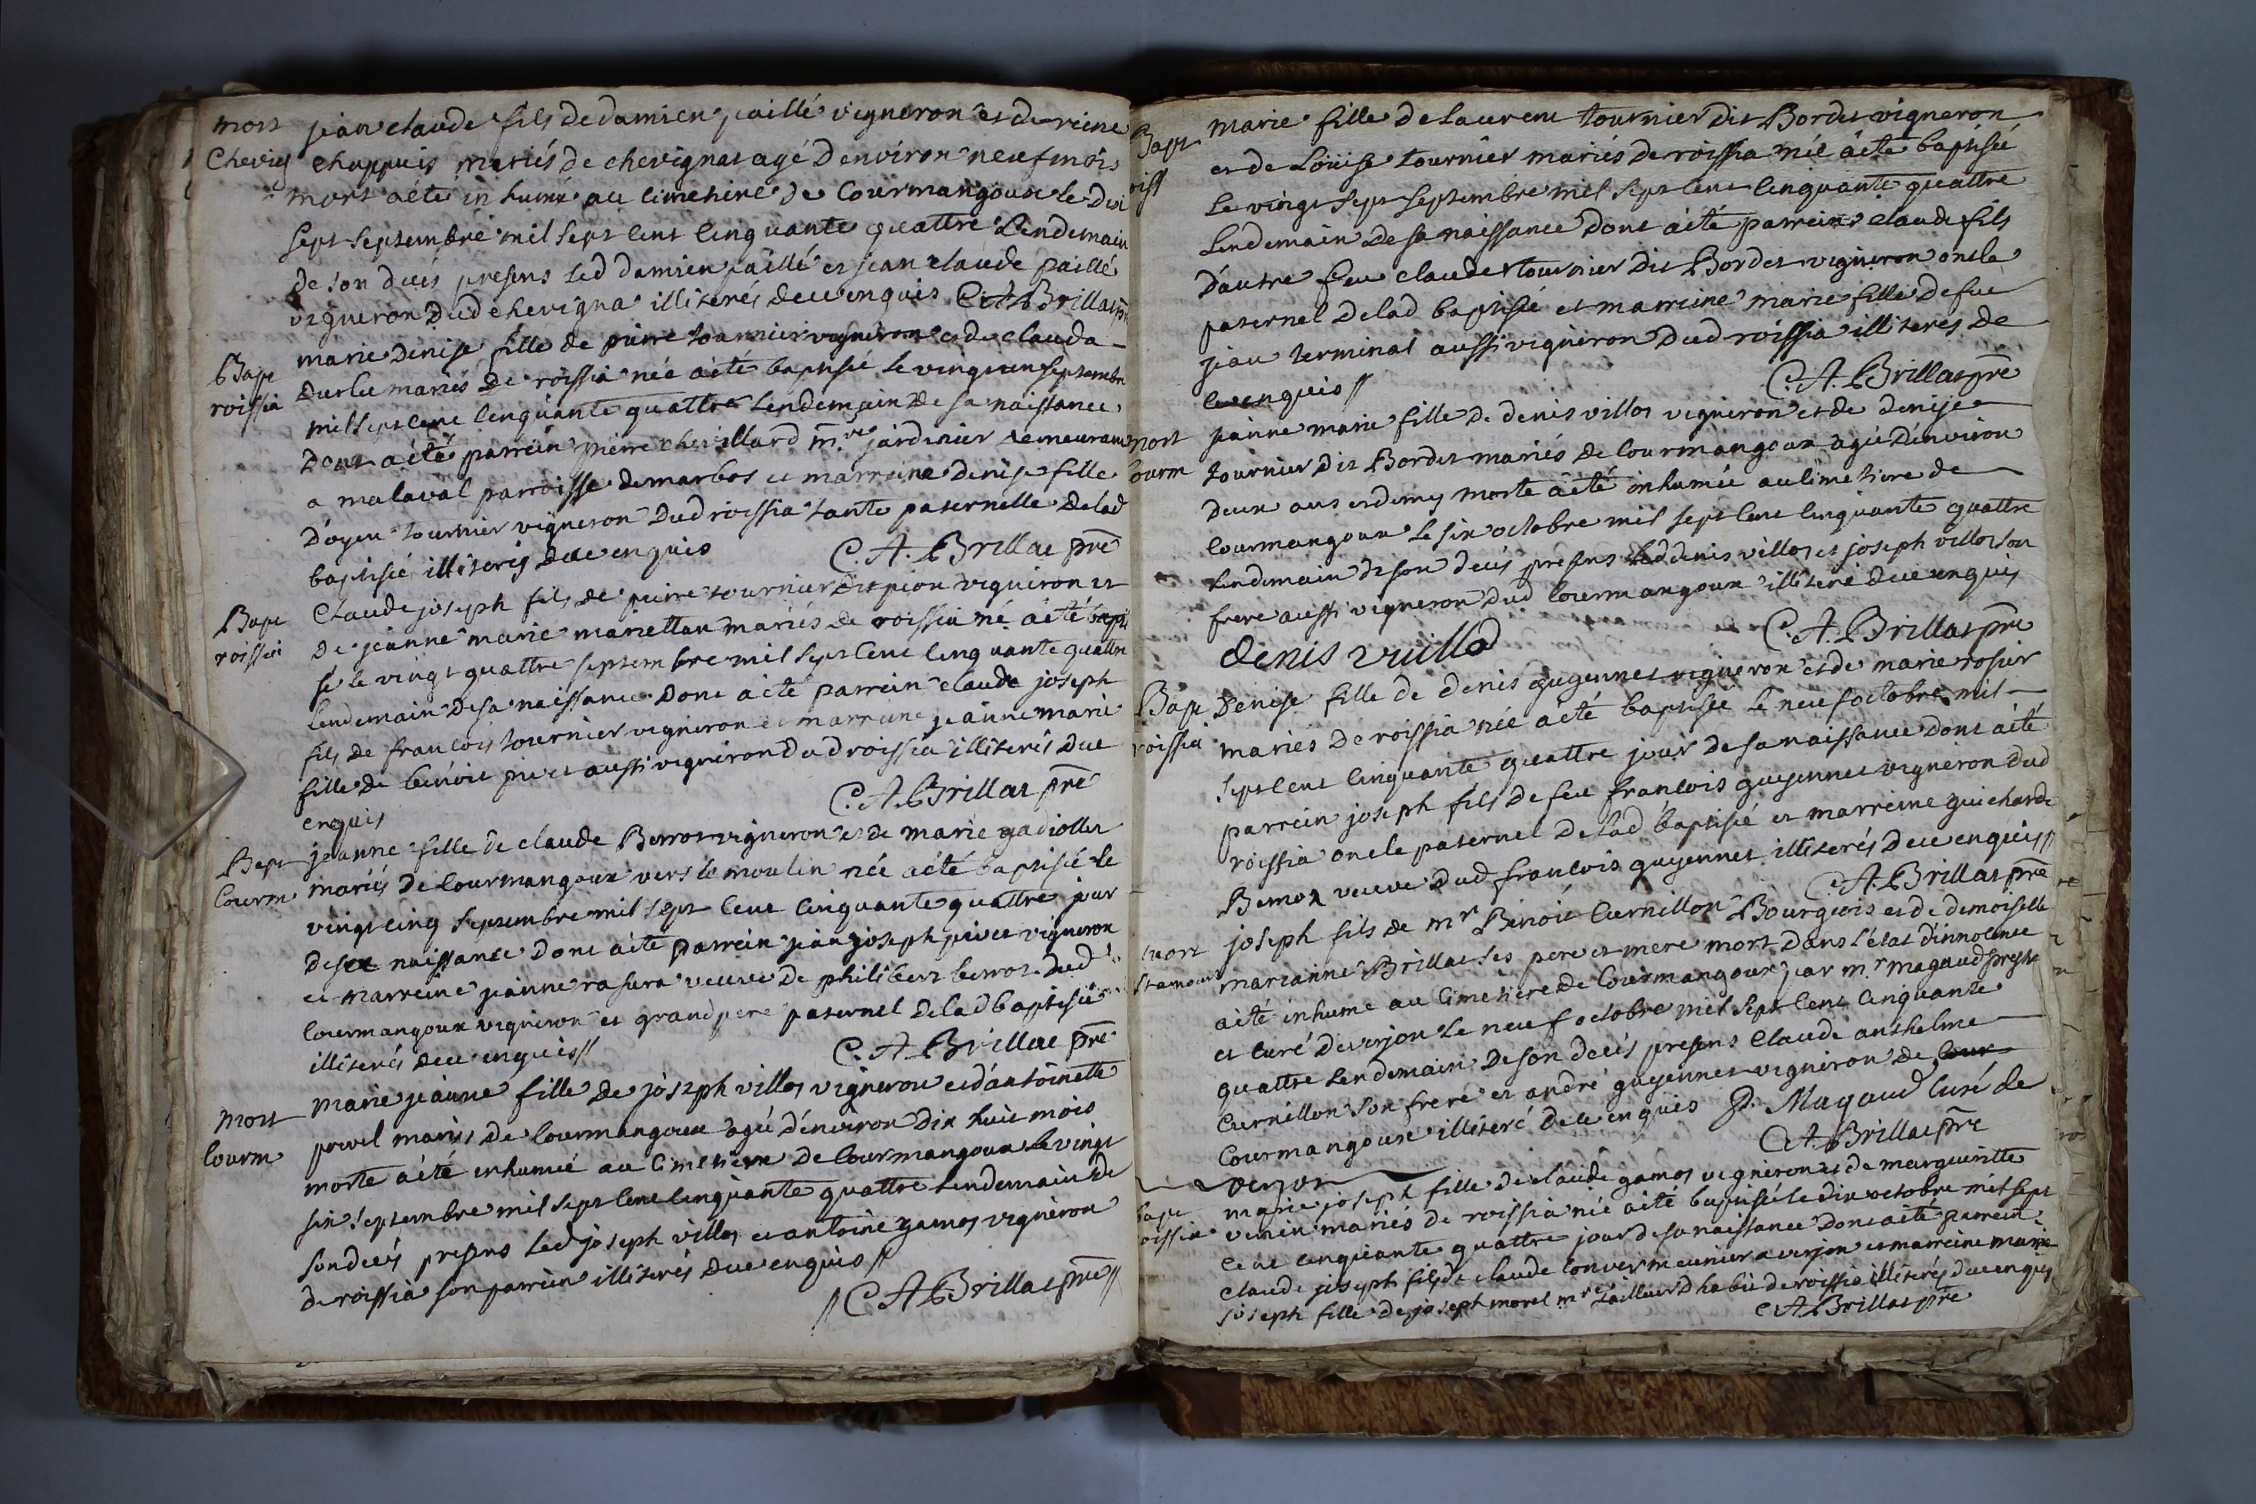 mort jean claude fils de damien paillé vigneron et de reine
Chevig chappuis mariés de chevignat agé denviron neuf mois
mort aété inhumé au cimetiere de Courmangoux le dix
sept septembre mil sept cent cinquante quattre Lendemain
de son decés presens led damien paillé et jean claude paillé
vigneron dud chevigna illiterés de ce enquis C. A. Brillat pre
Bapt marie denise fille de pierre tournier vigneron et de clauda
roissia mariés de roissia née aété baptisée le vingt un septembre
mil sept cent cinquante quattre Lendemain de sa naissance
dont aété parrein pierre chevillard me jardinier demeurant
a malaval parroisse de marbos et marreine denise fille
doyen tournier vigneron dud roissia tante paternelle delad
baptisée illiterés de ce enquis C. A. Brillat pre
Bapt Claude joseph fils de pierre tournier dit pion vigneron et
roissia de jeanne marie mariettan mariés de roissia né aété bapti
sé le vingt quattre septembre mil sept cent cinquante quattre
Lendemain de sa naissance dont aété parrein claude joseph
fils de francois tournier vigneron et marreine jeanne marie
fille de benoit pivet aussi vigneron dud roissia illiterés de ce
enquis C. A. Brillat pre
Bapt jeanne fille de claude Berrot vigneron et de marie gadiollet
Courm mariés de Courmangoux vers le moulin née aété baptisée le
vingt cinq septembre mil sept cent cinquante quattre jour
de sa naissance dont aété parrein jean joseph pivet vigneron
et marreine jeanne rasura veuve de philibert berrot dud
Courmangoux vigneron et grand pere paternel delad baptisée
illiterés de ce enquis // C. A. Brillat pre
mort marie jeanne fille de joseph villot vigneron et dantoinette
Courm powel mariés de Courmangoux agée denviron dix huit mois
morte aété inhumée au Cimetiere de Courmangoux le vingt
six septembre mil sept cent cinquante quattre Lendemain de
son decés presens led joseph villot et antoine gamos vigneron
de roissia son parrein illiterés de ce enquis //
// C. A. Brillat pre //
Bapt marie fille de Laurent tournier dit Bordet vigneron
roiss et de Loüise tournier mariés de roissia née aété baptisée
Le vingt sept septembre mil sept cent cinquante quattre
Lendemain de sa naissance dont aété parrein claude fils
d'autre feu claude tournier dit Bordet vigneron oncle
paternel delad baptisée et marreine marie fille de feu
jean terminal aussi vigneron dud roissia illiterés de
ce enquis // C. A. Brillat pre
mort jeanne marie fille de denis villot vigneron et de denise
Courm tournier dit Bordet mariés de Courmangoux agée denviron
deux ans et demy morte aété inhumée au Cimetiere de
Courmangoux le six octobre mil sept cent cinquante quattre
Lendemain de son decés presens led denis villot et joseph villot son
frere aussi vigneron dud Courmangoux illiteré de ce enquis
C. A. Brillat pre
denis vuillod
Bapt Denise fille de denis guyennet vigneron et de marie rosier
roissia mariés de roissia née aété baptisée le neuf octobre mil
sept cent cinquante quattre jour de sa naissance dont aété
parrein joseph fils de feu francois guyennet vigneron dud
roissia oncle paternel delad baptisée et marreine guicharde
Bemon veuve dud francois guyennet illiterés de ce enquis //
C. A. Brillat pre
mort joseph fils de mr Benoit Curnillon Bourgeois et de demoiselle
St amour marianne Brillat ses pere et mere mort dans l'etat d'innocence
aété inhumé au Cimetiere de Courmangoux par mr magaud prestre
et curé de verjon le neuf octobre mil sept cent cinquante
quattre Lendemain de son decés presens Claude anthelme
Curnillon son frere et andré guyennet vigneron de Cour
Courmangoux illiteré de ce enquis P. Magaud Curé de
C. A. Brillat pre
verjon
Bapt marie joseph fille de claude gamos vigneron et de margueritte
roissia venin mariés de roissia née aété baptisée le dix octobre mil sept
cent cinquante quattre jour de sa naissance dont aété parrein
claude joseph fils de claude Convert meunier a verjon et marreine marie
joseph fille de joseph morel me tailleur d'habit de roissia illiterés de ce enquis
C. A. Brillat pre